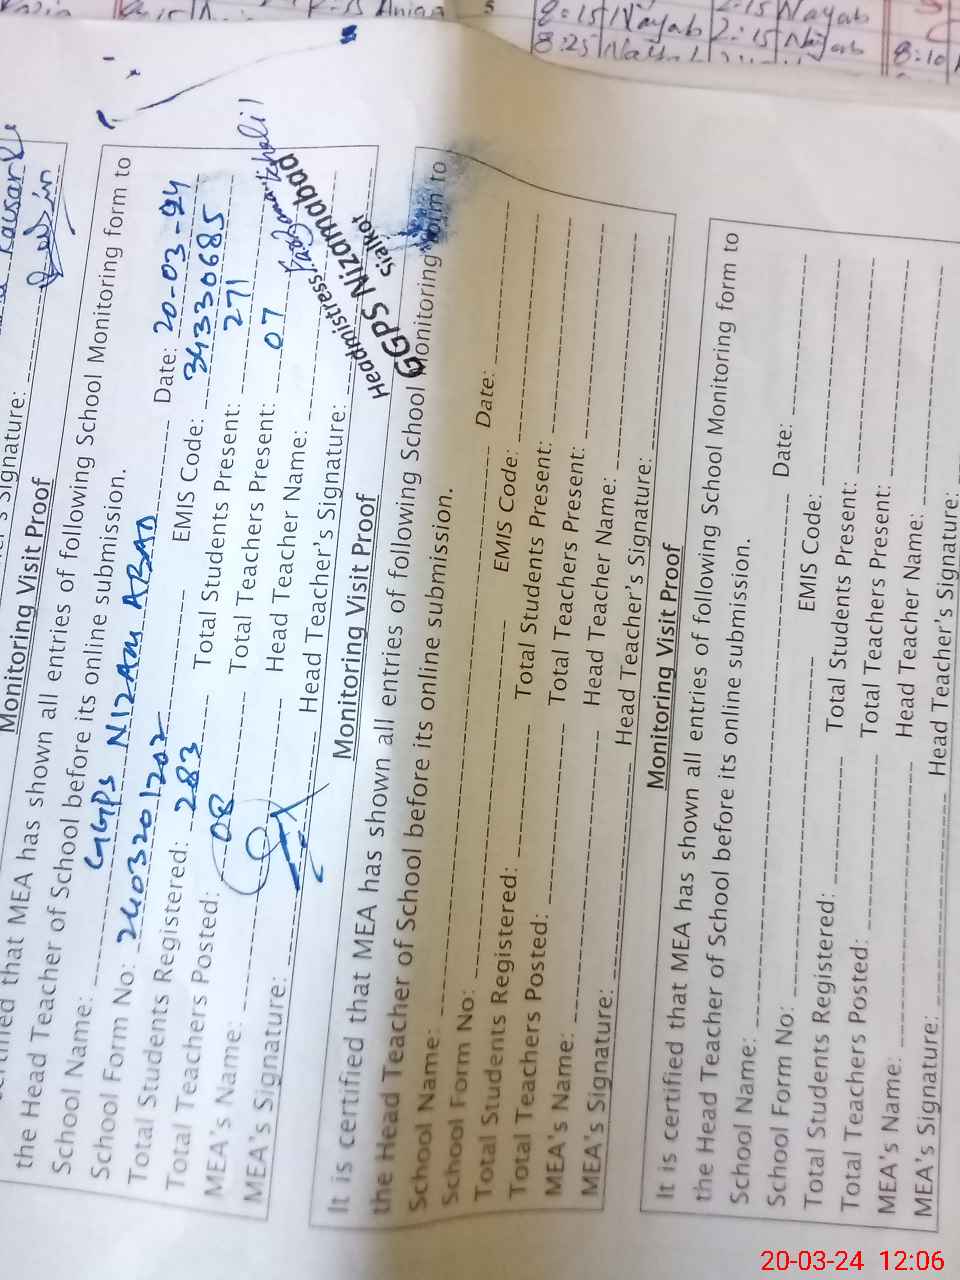 8:15 Nayab 2:15 Nayab
8:25 2:15 Nayab 8:10
Kausar
Signature:
Monitoring Visit Proof
that MEA has shown all entries of following School Monitoring form to
the Head Teacher of School before its online submission.
School Name: GGPS NIZAM ABAD Date: 20-03-24
School Form No: 2403201202 EMIS Code: 34330685
Total Students Registered: 283 Total Students Present: 271
Total Teachers Posted: 08 Total Teachers Present: 07
MEA's Name: Head Teacher Name:
MEA's Signature: Head Teacher's Signature:
Headmistress
GGPS Nizamabad
Sialkot
Monitoring Visit Proof
It is certified that MEA has shown all entries of following School Monitoring form to
the Head Teacher of School before its online submission.
School Name: Date:
School Form No: EMIS Code:
Total Students Registered: Total Students Present:
Total Teachers Posted: Total Teachers Present:
MEA's Name: Head Teacher Name:
MEA's Signature: Head Teacher's Signature:
Monitoring Visit Proof
It is certified that MEA has shown all entries of following School Monitoring form to
the Head Teacher of School before its online submission.
School Name: Date:
School Form No: EMIS Code:
Total Students Registered: Total Students Present:
Total Teachers Posted: Total Teachers Present:
MEA's Name: Head Teacher Name:
MEA's Signature: Head Teacher's Signature:
20-03-24 12:06